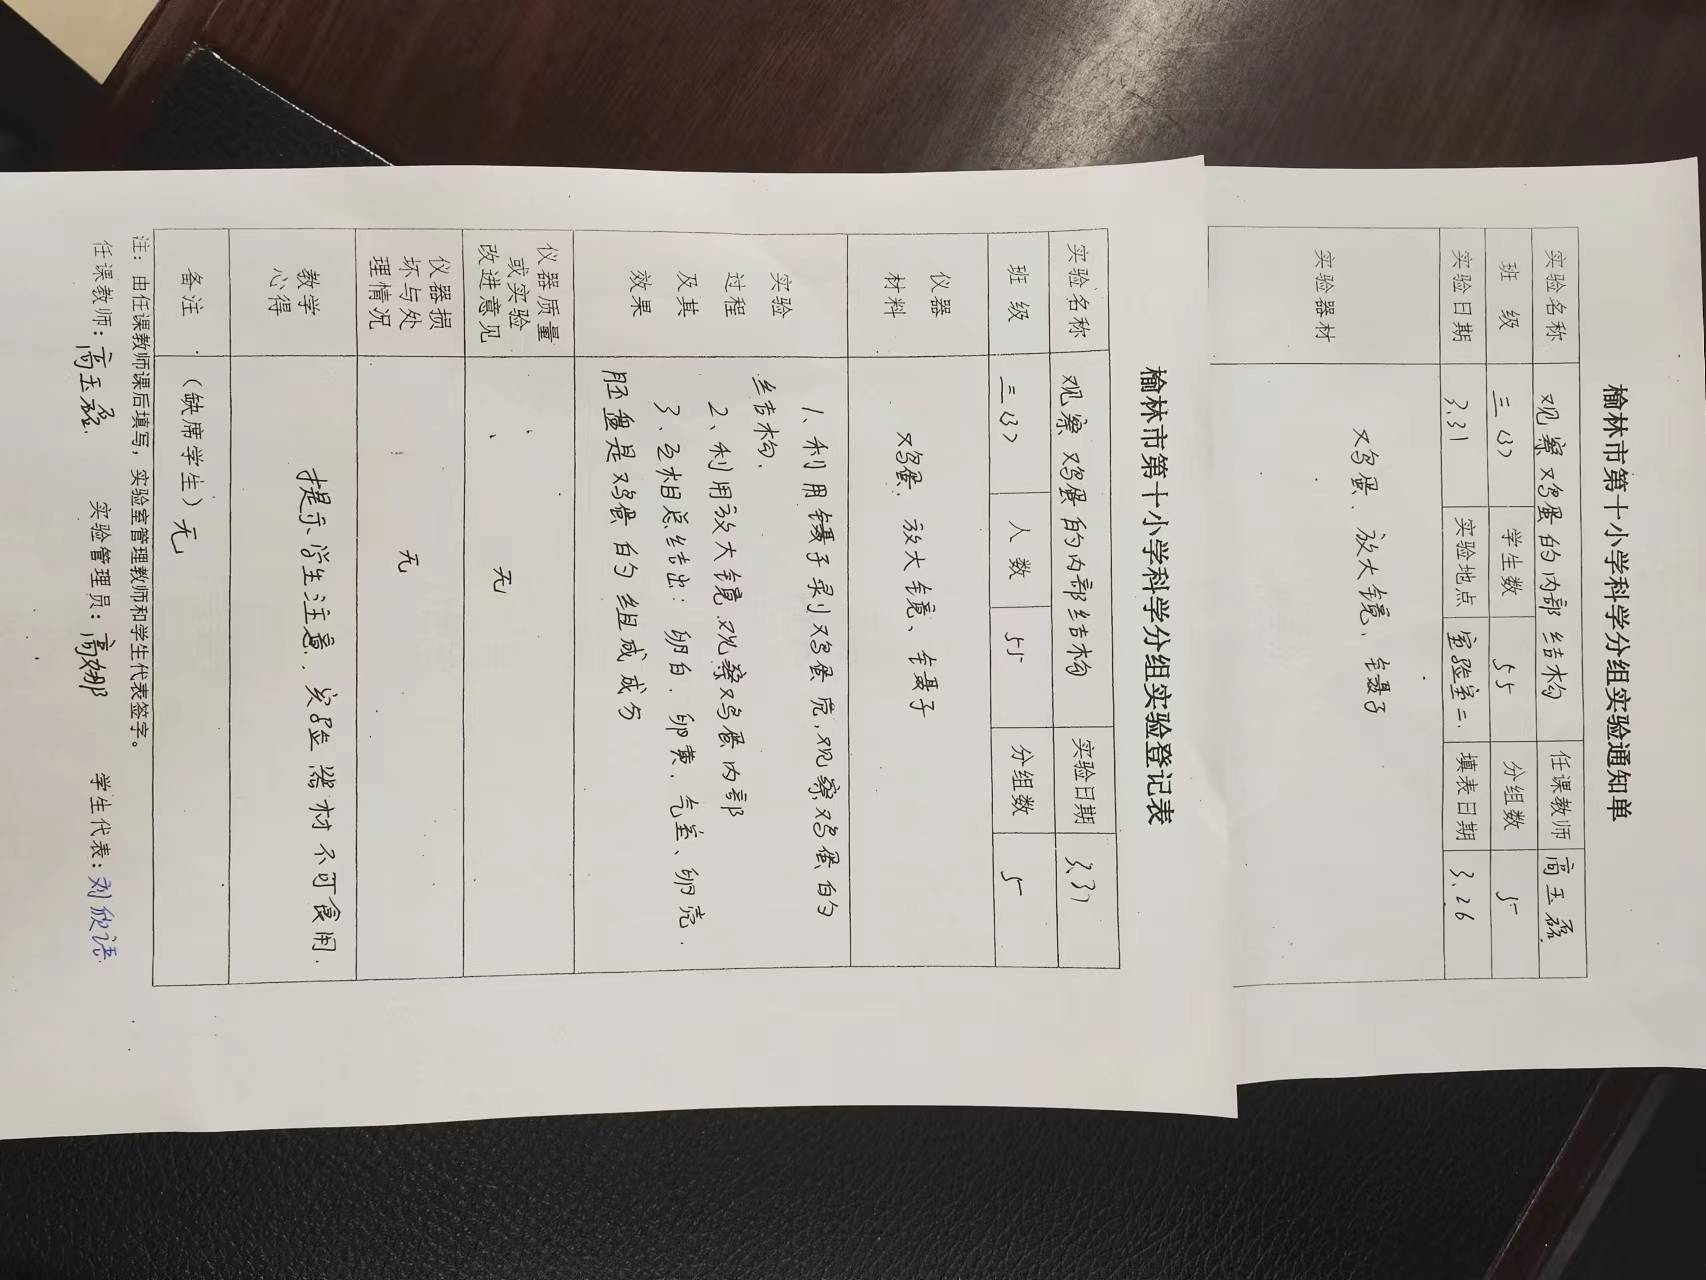 榆林市第十小学科学分组实验通知单
实验名称 观察鸡蛋的内部结构 任课教师 高玉磊
班 级 三(3) 学生数 55 分组数 5
实验日期 3.31 实验地点 实验室二 填表日期 3.26
实验器材 鸡蛋、放大镜、镊子
榆林市第十小学科学分组实验登记表
实验名称 观察鸡蛋的内部结构 实验日期 3.31
班 级 三(3) 人 数 55 分组数 5
仪器
材料
鸡蛋、放大镜、镊子
实验
过程
及其
效果
1、利用镊子剥鸡蛋壳,观察鸡蛋的
结构.
2、利用放大镜观察鸡蛋内部
3、互相总结出:卵白、卵黄、气室、卵壳.
胚盘是鸡蛋的组成成分
仪器质量
或实验
改进意见
无
仪器损
坏与处
理情况
无
教学
心得
提示学生注意.实验器材不可食用.
备注 (缺席学生)无
注:由任课教师课后填写,实验室管理教师和学生代表签字。
任课教师:高玉磊. 实验管理员:高娜 学生代表:刘欣语